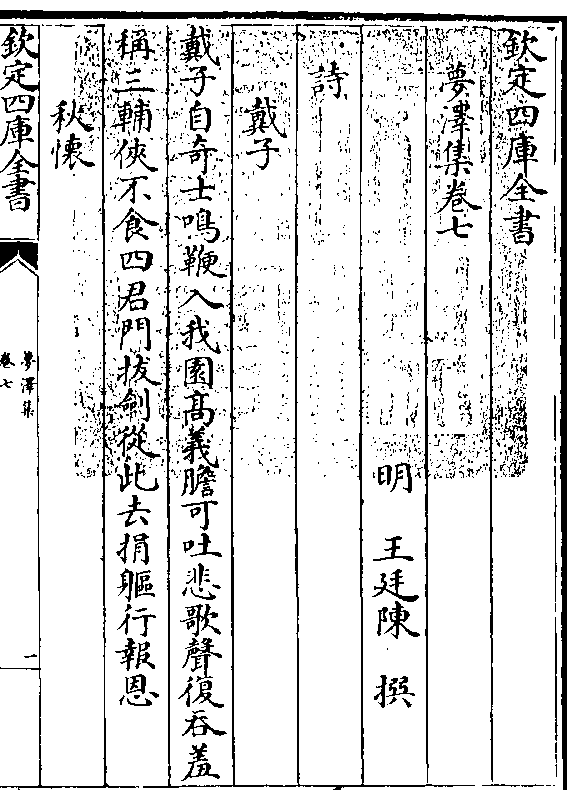 欽定四庫全書
夢澤集卷七
明 王廷陳 撰
詩
戴子
戴子自奇士鳴鞭入我園高義膽可吐悲歌聲復吞羞
稱三輔俠不食四君門拔劍從此去捐軀行報恩
秋懷
欽定四庫全書
夢澤集
卷七
一